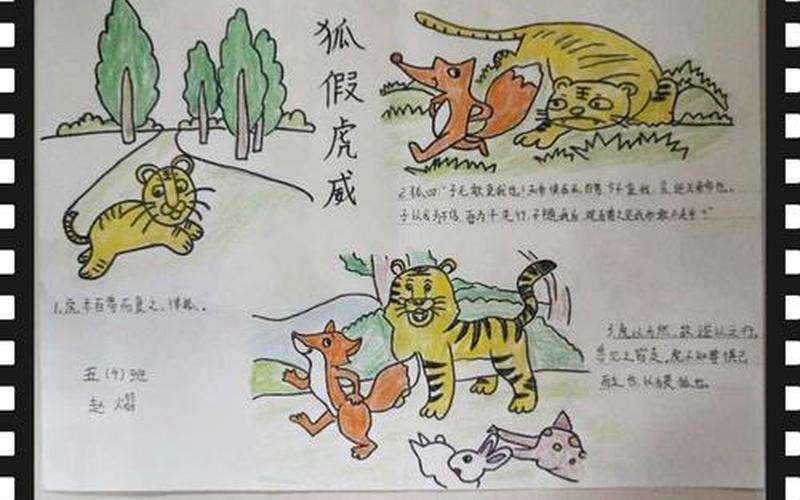 狐假虎威
1.虎求百兽而食之,得狐。
2.狐曰:"子无敢食我也!天帝使我长百兽,今子食我,是逆天帝命也。
子以我为不信,吾为子先行,子随我后,观百兽之见我而敢不走乎?"
3.虎以为然,故遂与之行。
兽见之皆走,虎不知兽畏己
而走也,以为畏狐也。
五(4)班
赵